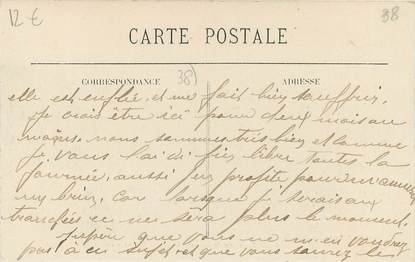 12 €
38
CARTE POSTALE
CORRESPONDANCE
38)
ADRESSE
elle est enflée, et me fait bien souffrir,
Je crois être ici pour deux mois au
moins, nous sommes très bien et comme
je vous l'ai dit libre toutes la
journée, aussi j'en profite pour m'amuser
un brin, car lorsque je serais aux
tranchées ce ne sera plus le moment.
J'espère que vous ne m'en voudrez
pas à ce sujet et que vous saurez le